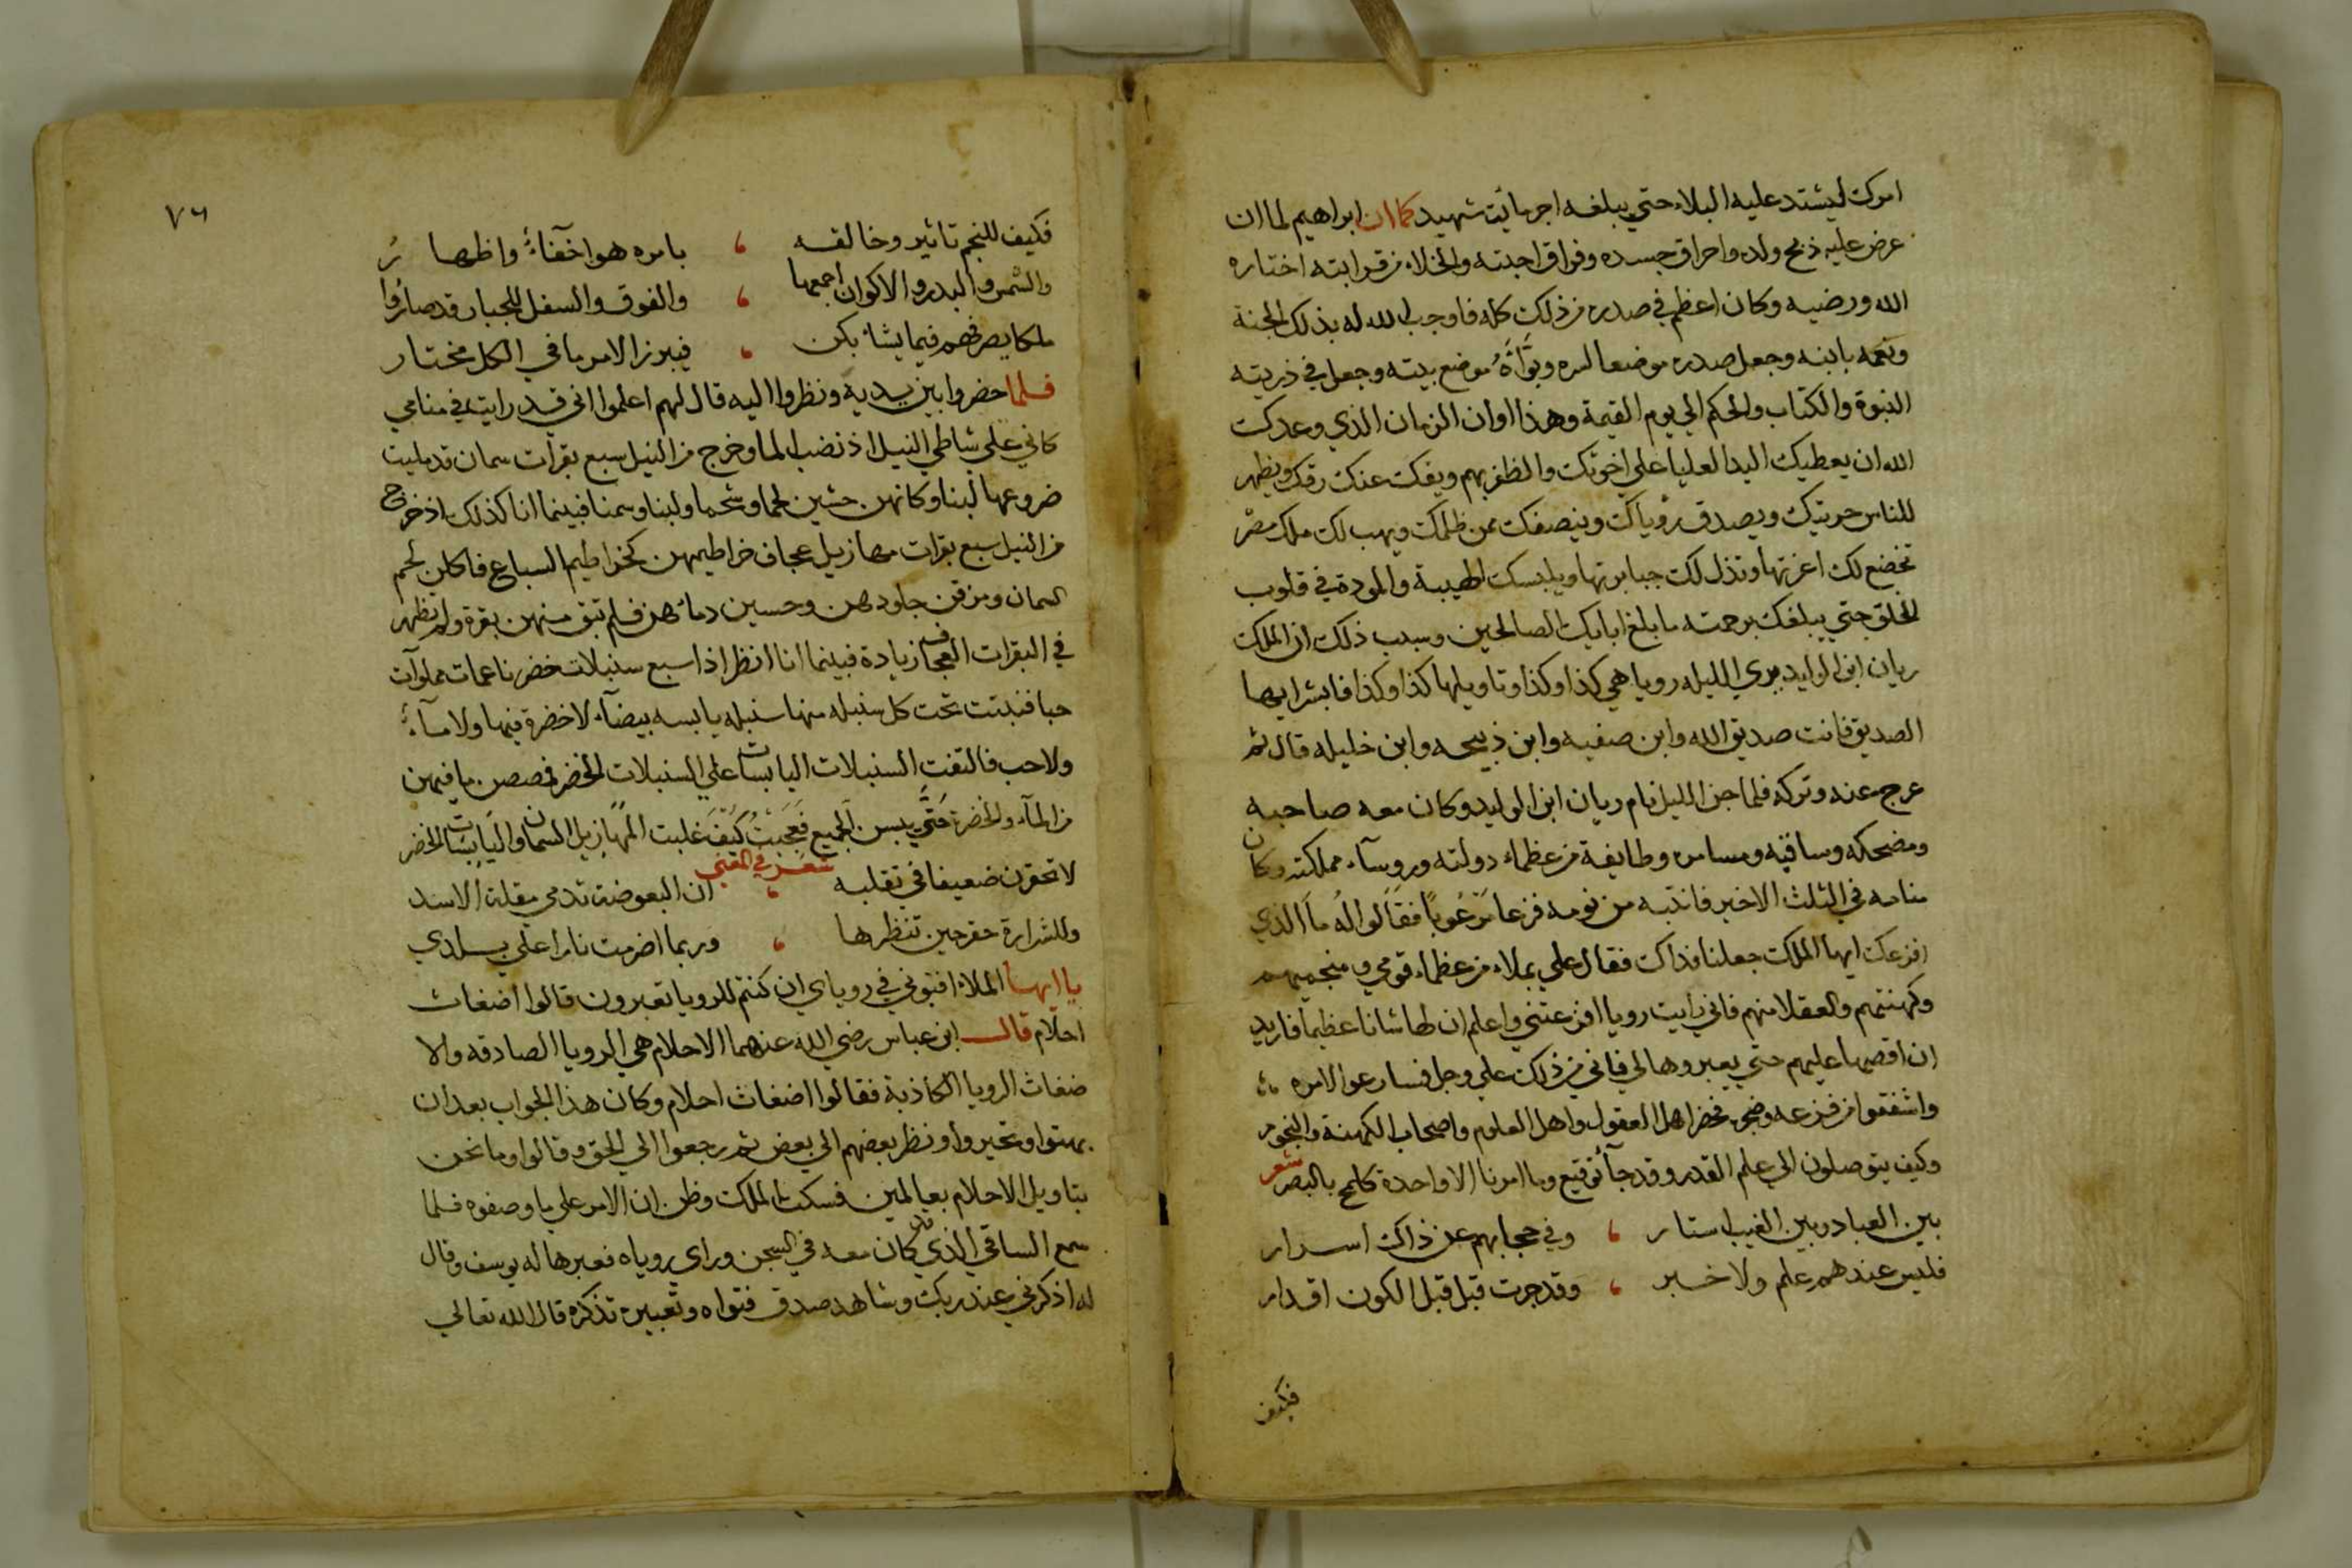 امرك ليشتد عليه البلاء حتي يبلغه اجر مايت شهيد كما ان ابراهيم لما ان
عرض عليه ذبح ولده واحراق جسده وفراق احبته والخلاء من قرابته اختاره
الله ورضيه وكان اعظم في صدره من ذلك كله فاوجب الله له بذلك الجنة
ونعمه بابنه وجعل صدره موضعا لسره وبوأه موضع بيته وجعل في ذريته
النبوة والكتاب والحكم الي يوم القيمة وهذا اوان الزمان الذي وعدك
الله ان يعطيك اليد العليا علي اخوتك والظفر بهم ويفك عنك رقك ويظهر
للناس حريتك ويصدق رؤياك وينصفك ممن ظلمك ويهب لك ملك مصر
تخضع لك اعزتها وتذل لك جبابرتها ويلبسك الهيبة والمودة في قلوب
الخلق حتي يبلغك برحمته ما بلغ ابايك الصالحين وسبب ذلك ان الملك
ريان ابن الوليد يري الليله رويا هي كذا وكذا وتاويلها كذا وكذا فابشر ايها
الصديق فانت صديق الله وابن صفيه وابن ذبيحه وابن خليله قال ثم
عرج عنه وتركه فلما جن الليل نام ريان ابن الوليد وكان معه صاحبه
ومضحكه وساقيه ومسامر وطايفة من عظماء دولته وروسآء مملكته وكان
منامه في الثلث الاخير فانتبه من نومه فزعا مرعوبا فقالوا له ما الذي
افزعك ايها الملك جعلنا فداك فقال علي بملاء من عظماء قومي ومنجميهم
وكهنتهم والعقلا منهم فاني رايت رويا افزعتني واعلم ان لها شانا عظيما فاريد
ان اقصها عليهم حتي يعبروها لي فاني من ذلك علي وجل فسارعوا لامره
واشفقوا من فزعه وضجره فحضر اهل العقول واهل العلوم واصحاب الكهنة والنجوم
وكيف يتوصلون الي علم القدر وقد جآ توقيع وما امرنا الا واحدة كلمح بالبصر شعر
بين العباد وبين الغيب استار ، وفي حجابهم عن ذاك اسرار
فليس عندهم علم ولا خبر ، وقد جرت قبل قبل الكون اقدار
فكيف
٧٦
فكيف للنجم تاثير وخالقه ، بامره هو اخفآء واظهار
والشمس والبدر والاكوان اجمعها ، والفوق والسفل للجبار قد صاروا
ملكا يصرفهم فيما يشاء بكن ، فيبرز الامر ما في الكل مختار
فلما حضروا بين يديه ونظروا اليه قال لهم اعلموا اني قد رايت في منامي
كاني علي شاطي النيل اذ نضب الما وخرج من النيل سبع بقرات سمان قد مليت
ضروعها لبنا وكانهن حشين لحما وشحما ولبنا وسمنا فبينما انا كذلك اذ خرج
من النيل سبع بقرات مهازيل عجاف خراطيمهن كخراطيم السباع فاكلن لحم
السمان ومزقن جلودهن وحسين دمائهن فلم تبق منهن بقرة ولم يظهر
في البقرات العجاف زيادة فبينما انا انظر اذا سبع سنبلات خضر ناعمات مملوآت
حبا فنبتت تحت كل سنبله منها سنبله يابسه بيضآء لا خضرة فيها ولا مآء
ولا حب فالتفت السنبلات اليابسات علي السنبلات الخضر فمصصن ما فيهن
من المآء والخضرة حتي يبس الجميع فعجبت كيف غلبت المهازيل السمان واليابسات الخضر
شعر في المعني
لا تحقرن ضعيفا في تقلبه ، ان البعوضة تدمي مقلة الاسد
وللشرارة حقر حين تنظرها ، وربما اضرمت نارا علي بلدي
يا ايها الملاء افتوني في روياي ان كنتم للرويا تعبرون قالوا اضغاث
احلام قال ابن عباس رضي الله عنهما الاحلام هي الرويا الصادقه والا
ضغاث الرويا الكاذبة فقالوا اضغاث احلام وكان هذا الجواب بعد ان
بهتوا وتحيروا ونظر بعضهم الي بعض ثم رجعوا الي الحق وقالوا وما نحن
بتاويل الاحلام بعالمين فسكت الملك وظن ان الامر علي ما وصفوه فلما
سمع الساقي الذي كان معه في السجن وراي روياه فعبرها له يوسف وقال
له اذكرني عند ربك وشاهد صدق فتواه وتعبيره تذكره قال الله تعالي